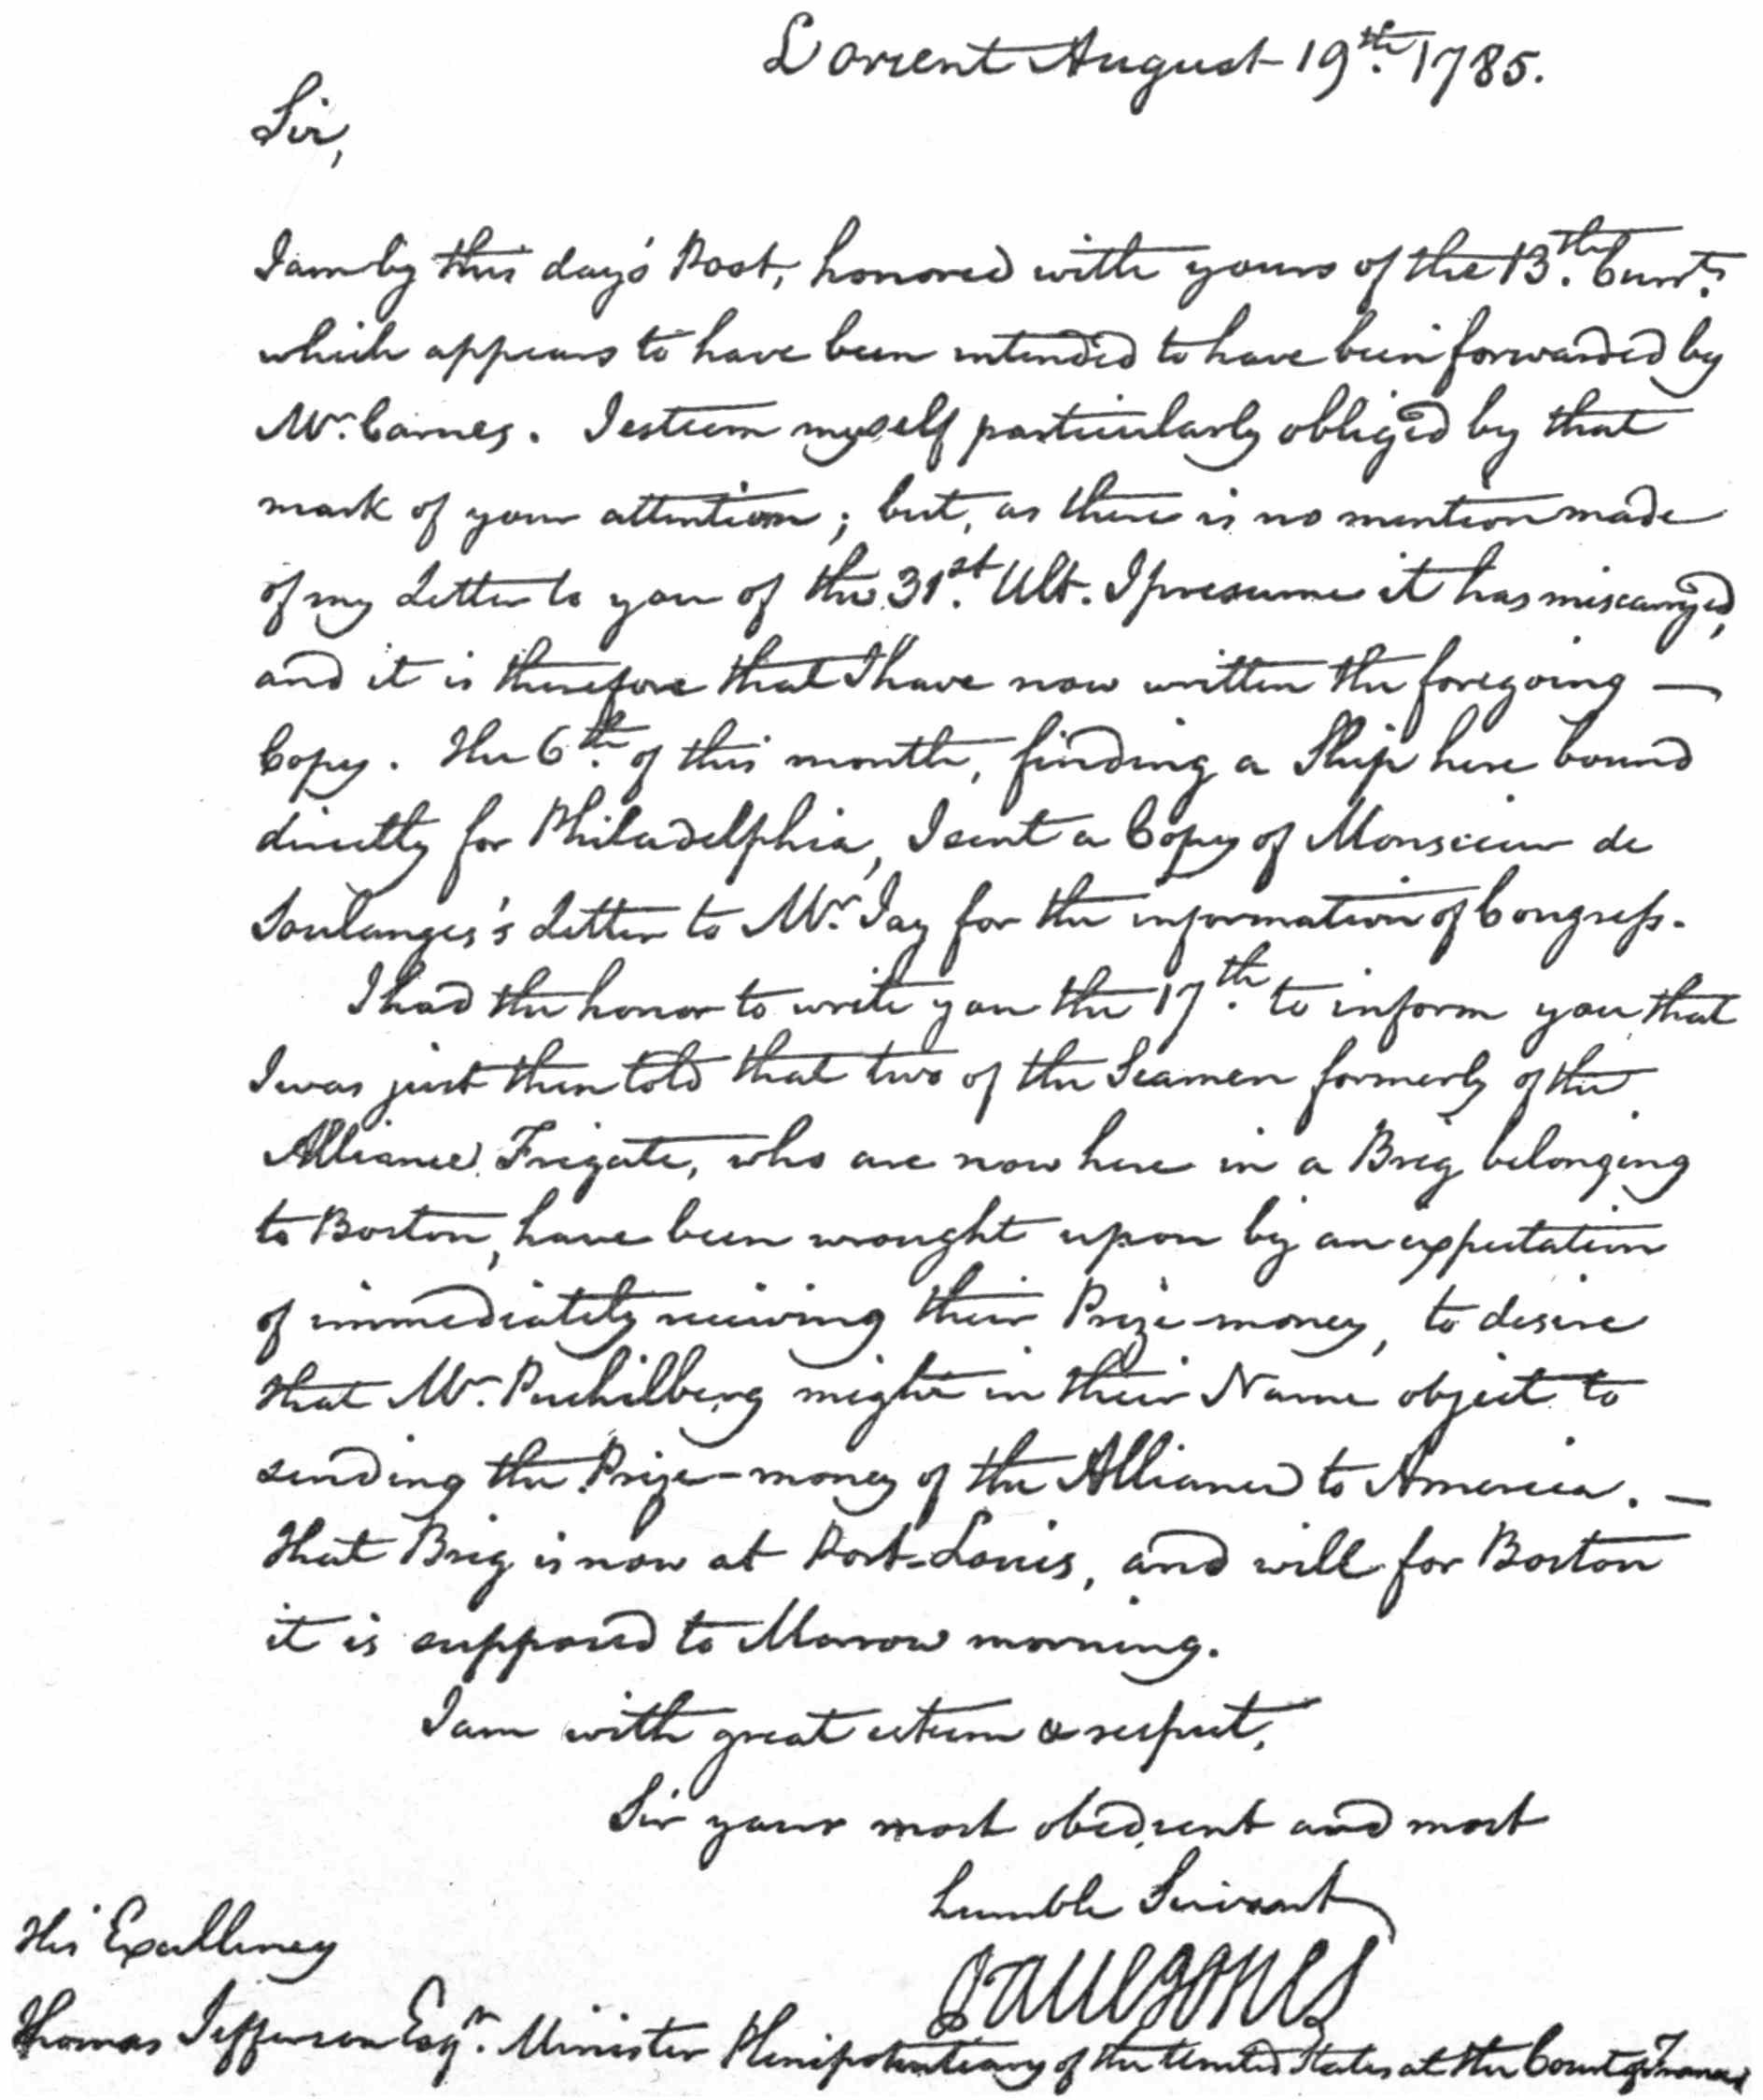 L'Orient August 19th. 1785.
Sir,
I am by this day's Post, honored with yours of the 13th. Curr.t
which appears to have been intended to have been forwarded by
Mr. Carnes. I esteem myself particularly obliged by that
mark of your attention; but, as there is no mention made
of my Letter to you of the 31st. Ult. I presume it has miscarryed,
and it is therefore that I have now written the foregoing —
Copy. The 6th. of this month, finding a Ship here bound
directly for Philadelphia, I sent a Copy of Monsieur de
Soulanges's Letter to Mr. Jay for the information of Congress.
I had the honor to write you the 17th. to inform you that
I was just then told that two of the Seamen formerly of the
Alliance Frigate, who are now here in a Brig belonging
to Boston, have been wrought upon by an expectation
of immediately receiving their Prize-money, to desire
that Mr. Puchilberg might in their Name object to
sending the Prize-money of the Alliance to America. —
That Brig is now at Port-Louis, and will for Boston
it is supposed to Morrow morning.
I am with great esteem & respect,
Sir your most obedient and most
humble Servant
Paul Jones
His Excellency
Thomas Jefferson Esqr. Minister Plenipotentiary of the United States at the Court of France